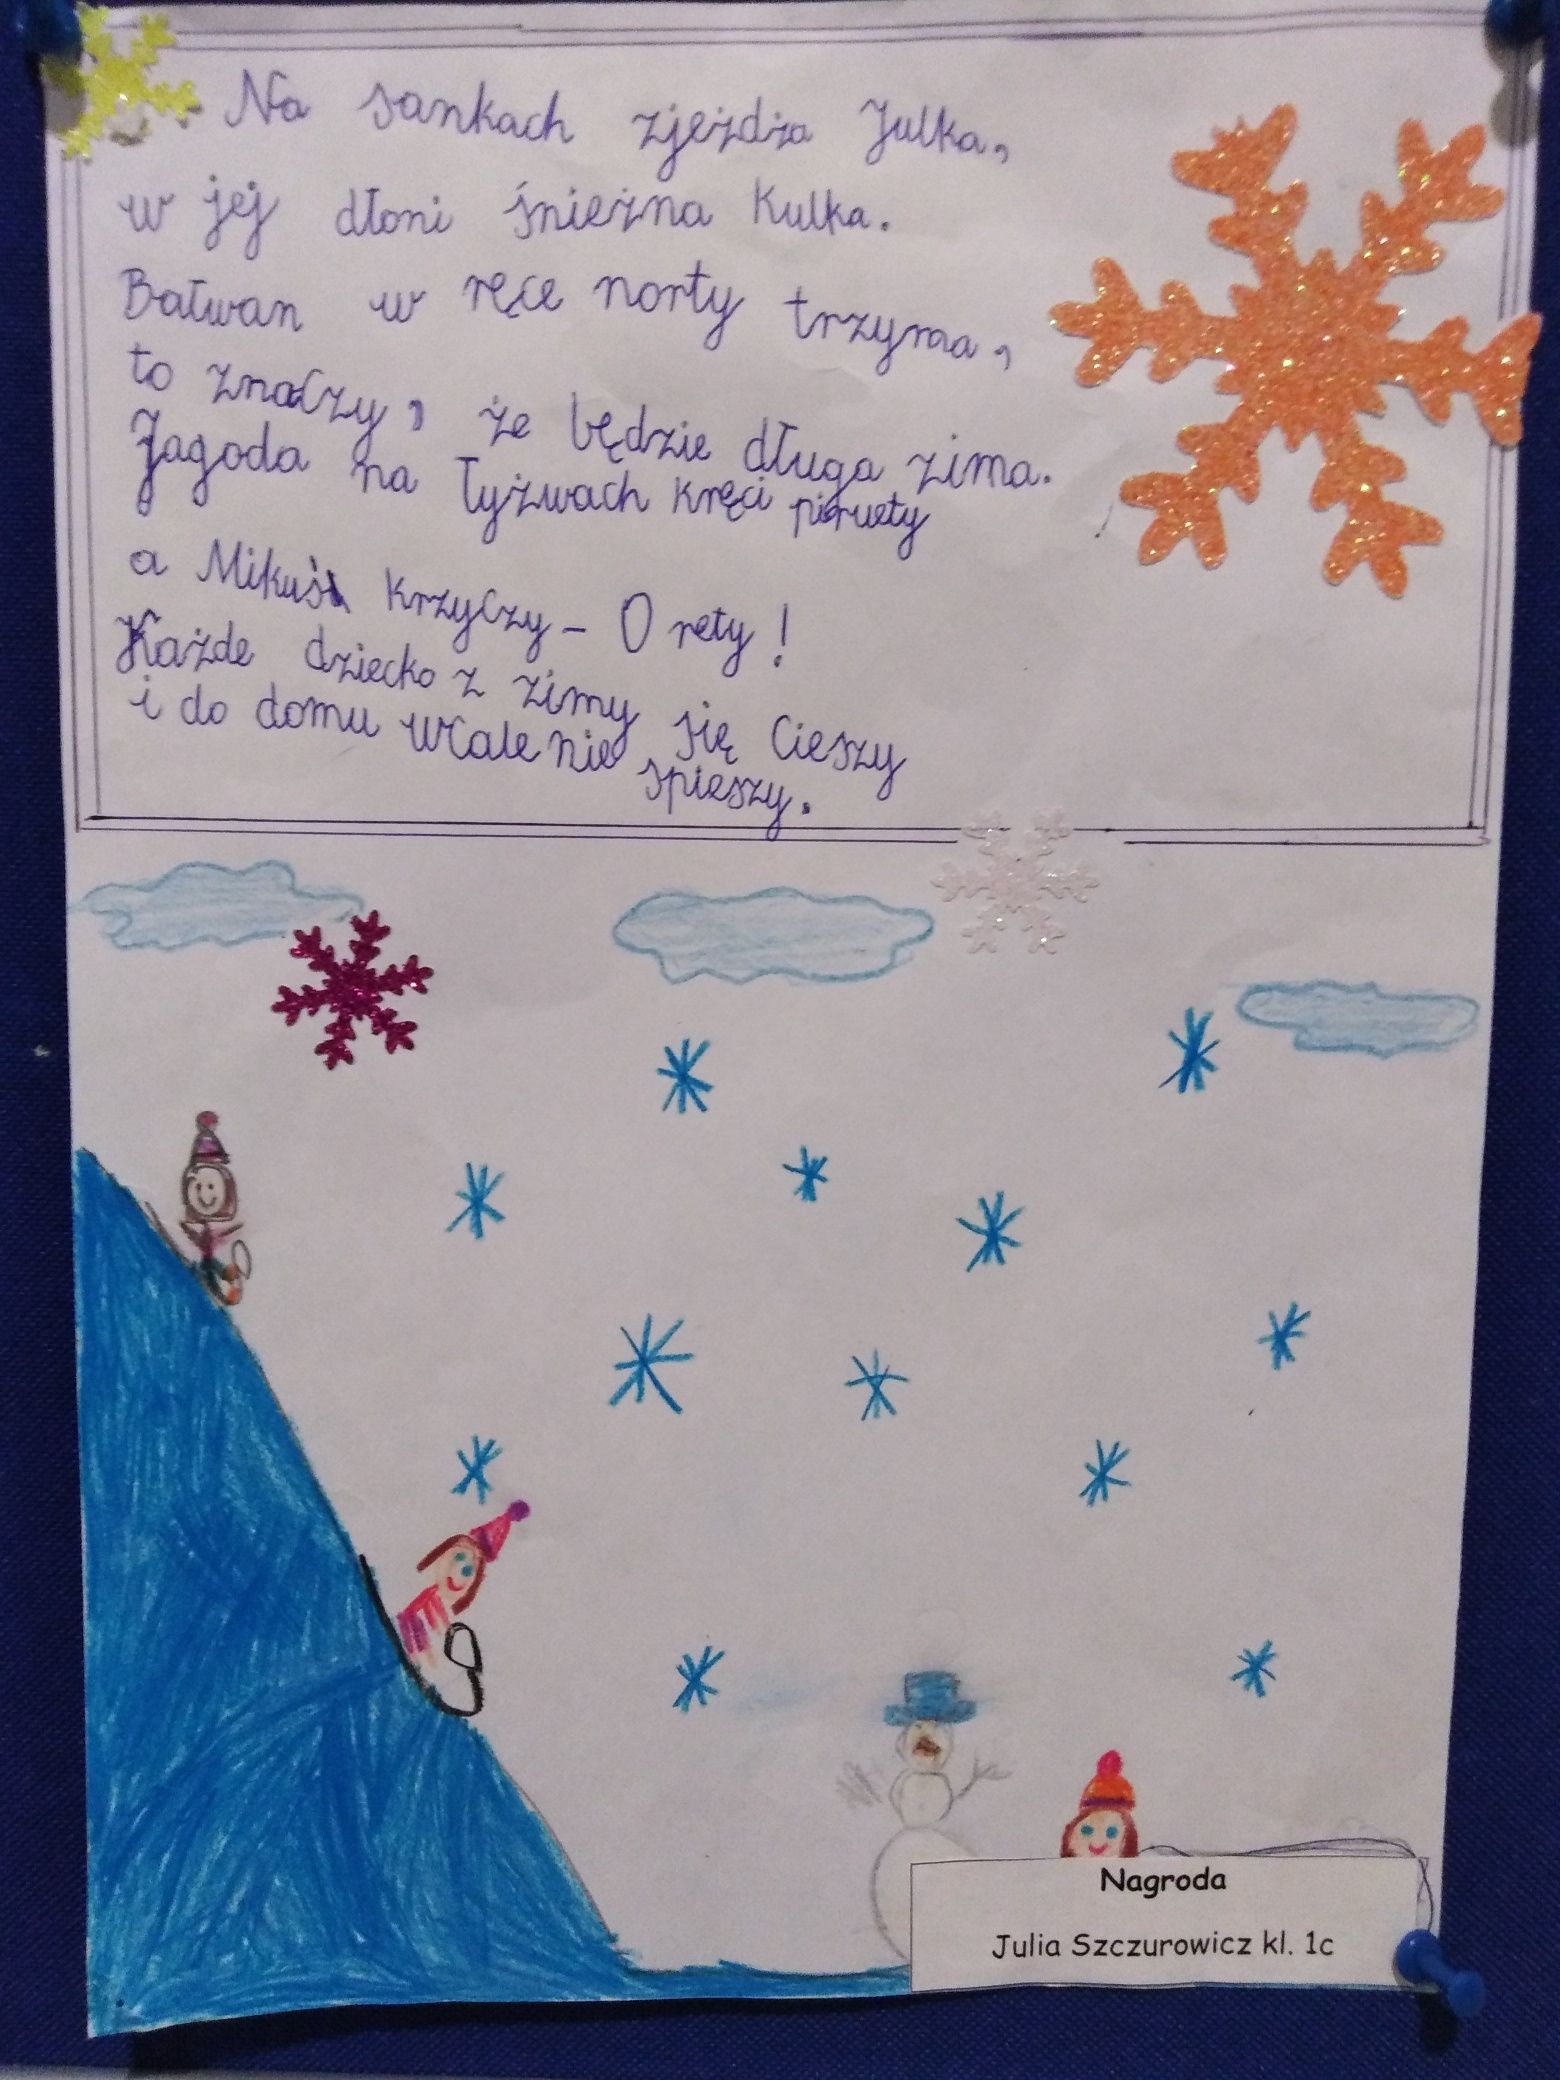 Na sankach zjeżdża Julka,
w jej dłoni śnieżna Kulka.
Bałwan w ręce norty trzyma,
to znaczy, że będzie długa zima.
Jagoda na łyżwach kręci piruety
a Mikuś krzyczy – O rety!
Każde dziecko z zimy się cieszy
i do domu wcale nie
spieszy.
Nagroda
Julia Szczurowicz kl. 1c